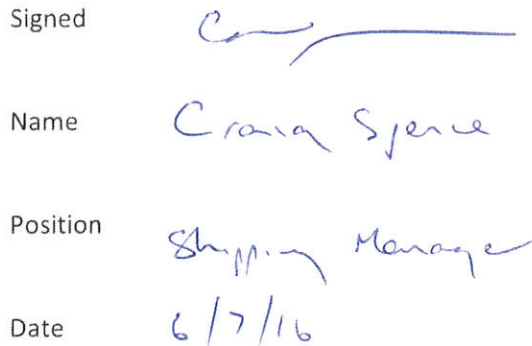 Signed
Name Craig Spence
Position Shipping Manager
Date 6/7/16